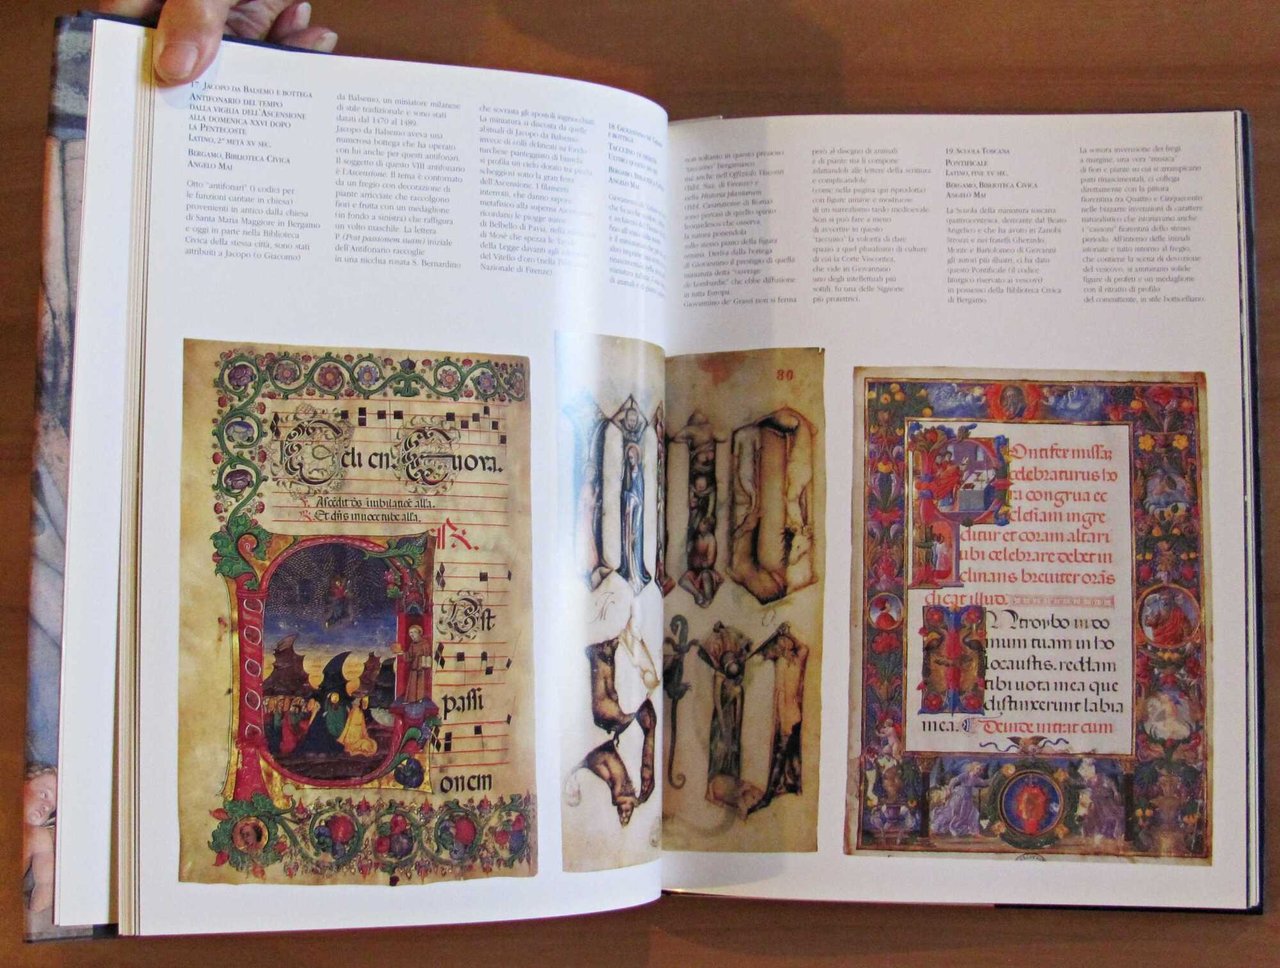 17. Jacopo da Balsemo e bottega
Antifonario del tempo
dalla vigilia dell'Ascensione
alla domenica XXVI dopo
la Pentecoste
Latino, 2ª metà XV sec.
Bergamo, Biblioteca Civica
Angelo Mai
Otto "antifonari" (i codici per
le funzioni cantate in chiesa)
provenienti in antico dalla chiesa
di Santa Maria Maggiore in Bergamo
e oggi in parte nella Biblioteca
Civica della stessa città, sono stati
attribuiti a Jacopo (o Giacomo)
da Balsemo, un miniatore milanese
di stile tradizionale e sono stati
datati dal 1470 al 1489.
Jacopo da Balsemo aveva una
numerosa bottega che ha operato
con lui anche per questi antifonari.
Il soggetto di questo VIII antifonario
è l'Ascensione. Il tema è contornato
da un fregio con decorazione di
piante arricciate che raccolgono
fiori e frutta con un medaglione
(in fondo a sinistra) che raffigura
un volto maschile. La lettera
P (Post passionem suam) iniziale
dell'Antifonario raccoglie
in una nicchia rosata S. Bernardino
che sovrasta gli apostoli inginocchiati.
La miniatura si discosta da quelle
abituali di Jacopo da Balsemo:
invece di colli delineati su fondo
turchese punteggiato di bianchi,
si profila un cielo dorato tra picchi
scheggiosi sotto la gran festa
dell'Ascensione. I filamenti
interrotti, che danno sapore
metafisico alla superna Ascensione,
ricordano le piogge
di Belbello di Pavia, nella
di Mosè che spezza le
della Legge davanti
del Vitello d'oro (nella
Nazionale di Firenze)
18. Giovannino de' Grassi
e bottega
Taccuino di disegni
Bergamo, Biblioteca Civica
Angelo Mai
non soltanto in questo prezioso
"taccuino" bergamasco
ma anche nell'Offiziolo Visconti
(Bibl. Naz. di Firenze) e
nella Historia plantarum
(Bibl. Casanatense di Roma)
sono pervasi di quello spirito
leonardesco che osserva
la natura ponendola
sullo stesso piano della figura
umana. Derivò dalla bottega
di Giovannino il prestigio di quella
miniatura detta "ouvrage
de Lombardie" che ebbe diffusione
in tutta Europa.
Giovannino de' Grassi non si ferma
però al disegno di animali
e di piante ma li compone
adattandoli alle lettere della scrittura
e complicandole
(come nella pagina qui riprodotta)
con figure amene e mostruose
di un surrealismo tardo medioevale.
Non si può fare a meno
di avvertire in questo
"taccuino" la volontà di dare
spazio a quel pluralismo di culture
di cui la Corte Viscontea,
che vide in Giovannino
uno degli intellettuali più
sottili, fu una delle Signorie
più protettrici.
19. Scuola Toscana
Pontificale
Latino, fine XV sec.
Bergamo, Biblioteca Civica
Angelo Mai
La Scuola della miniatura toscana
quattrocentesca, dominata dal Beato
Angelico e che ha avuto in Zanobi
Strozzi e nei fratelli Gherardo,
Monte e Bartolomeo di Giovanni
gli autori più illustri, ci ha dato
questo Pontificale (il codice
liturgico riservato ai vescovi)
in possesso della Biblioteca Civica
di Bergamo
La sonora invenzione dei fregi
a margine, una vera "musica"
di fiori e piante su cui si arrampicano
putti rinascimentali, ci collega
direttamente con la pittura
fiorentina tra Quattro e Cinquecento
nelle bizzarre invenzioni di carattere
naturalistico che intonavano anche
i "cassoni" fiorentini dello stesso
periodo. All'interno delle iniziali
istoriate e tutto intorno al fregio,
che contiene la scena di devozione
del vescovo, si innalzano solide
figure di profeti e un medaglione
con il ritratto di profilo
del committente, in stile botticelliano
celi en. Euora.
Et dñs in voce tube alla.
Post
passi
onem
80
Pontifex missaz
celebraturus ho
ra congrua ec
clesiam ingre
ditur et coram altari
ubi celebrare debet in
clinans breuiter orañs
dicat illud.
Introybo in do
mum tuam in ho
locaustis. reddam
tibi vota mea que
distinxerunt labia
mea. Deinde intrat cum